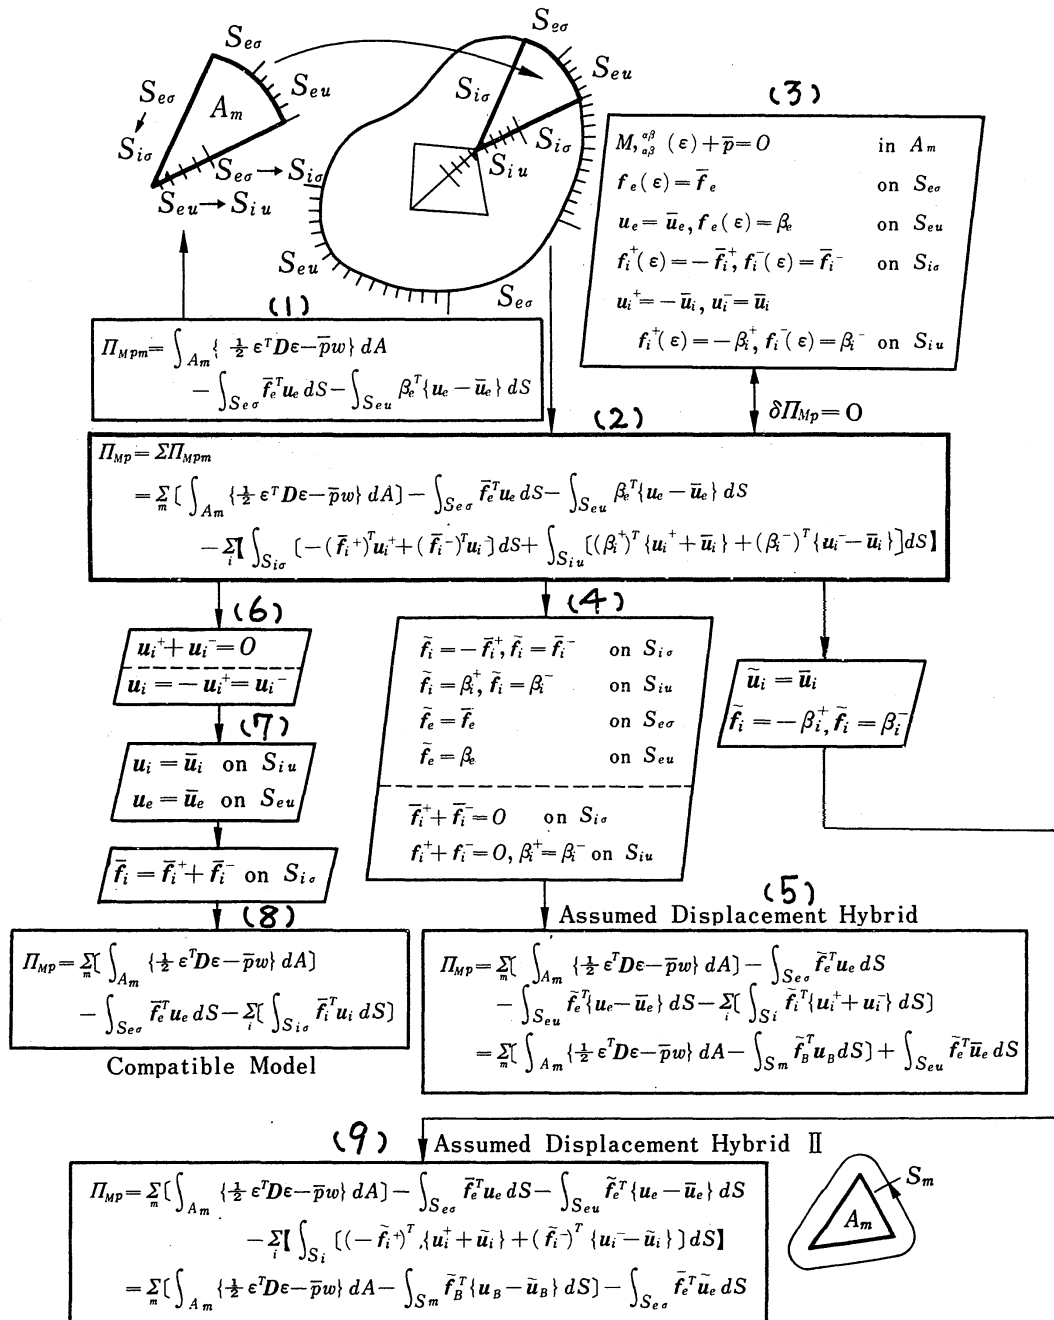 S_{eσ}
S_{eσ}
S_{eu}
S_{eu}
S_{eσ}
A_m
S_{iσ}
S_{iσ}
S_{iσ}
S_{eσ}→S_{iσ}
S_{iu}
S_{eu}→S_{iu}
S_{eu}
S_{eσ}
(3)
M,_{αβ}^{αβ}(ε)+p̄=0 in A_m
f_e(ε)=f̄_e on S_{eσ}
u_e=ū_e, f_e(ε)=β_e on S_{eu}
f_i^+(ε)=-f̄_i^+, f_i^-(ε)=f̄_i^- on S_{iσ}
u_i^+=-ū_i, u_i^-=ū_i
f_i^+(ε)=-β_i^+, f_i^-(ε)=β_i^- on S_{iu}
(1)
Π_{Mpm}=∫_{A_m}{½ε^T Dε-p̄w}dA
-∫_{S_{eσ}} f̄_e^T u_e dS-∫_{S_{eu}} β_e^T{u_e-ū_e}dS
δΠ_{Mp}=0
(2)
Π_{Mp}=ΣΠ_{Mpm}
=Σ_m[∫_{A_m}{½ε^T Dε-p̄w}dA]-∫_{S_{eσ}} f̄_e^T u_e dS-∫_{S_{eu}} β_e^T{u_e-ū_e}dS
-Σ_i【∫_{S_{iσ}}[-(f̄_i^+)^T u_i^++(f̄_i^-)^T u_i^-]dS+∫_{S_{iu}}[(β_i^+)^T{u_i^++ū_i}+(β_i^-)^T{u_i^--ū_i}]dS】
(6)
u_i^++u_i^-=0
u_i=-u_i^+=u_i^-
(7)
u_i=ū_i on S_{iu}
u_e=ū_e on S_{eu}
f̄_i=f̄_i^++f̄_i^- on S_{iσ}
(8)
Π_{Mp}=Σ_m[∫_{A_m}{½ε^T Dε-p̄w}dA]
-∫_{S_{eσ}} f̄_e^T u_e dS-Σ_i[∫_{S_{iσ}} f̄_i^T u_i dS]
Compatible Model
(4)
f̃_i=-f̄_i^+, f̃_i=f̄_i^- on S_{iσ}
f̃_i=β_i^+, f̃_i=β_i^- on S_{iu}
f̃_e=f̄_e on S_{eσ}
f̃_e=β_e on S_{eu}
f̄_i^++f̄_i^-=0 on S_{iσ}
f_i^++f_i^-=0, β_i^+=β_i^- on S_{iu}
ũ_i=ū_i
f̃_i=-β_i^+, f̃_i=β_i^-
(5)
Assumed Displacement Hybrid
Π_{Mp}=Σ_m[∫_{A_m}{½ε^T Dε-p̄w}dA]-∫_{S_{eσ}} f̃_e^T u_e dS
-∫_{S_{eu}} f̃_e^T{u_e-ū_e}dS-Σ_i[∫_{S_i} f̃_i^T{u_i^++u_i^-}dS]
=Σ_m[∫_{A_m}{½ε^T Dε-p̄w}dA-∫_{S_m} f̃_B^T u_B dS]+∫_{S_{eu}} f̃_e^T ū_e dS
(9)
Assumed Displacement Hybrid Ⅱ
Π_{Mp}=Σ_m[∫_{A_m}{½ε^T Dε-p̄w}dA]-∫_{S_{eσ}} f̄_e^T u_e dS-∫_{S_{eu}} f̃_e^T{u_e-ū_e}dS
-Σ_i【∫_{S_i}[(-f̃_i^+)^T.{u_i^++ũ_i}+(f̃_i^-)^T{u_i^--ũ_i}]dS】
=Σ_m[∫_{A_m}{½ε^T Dε-p̄w}dA-∫_{S_m} f̃_B^T{u_B-ũ_B}dS]-∫_{S_{eσ}} f̄_e^T ũ_e dS
S_m
A_m